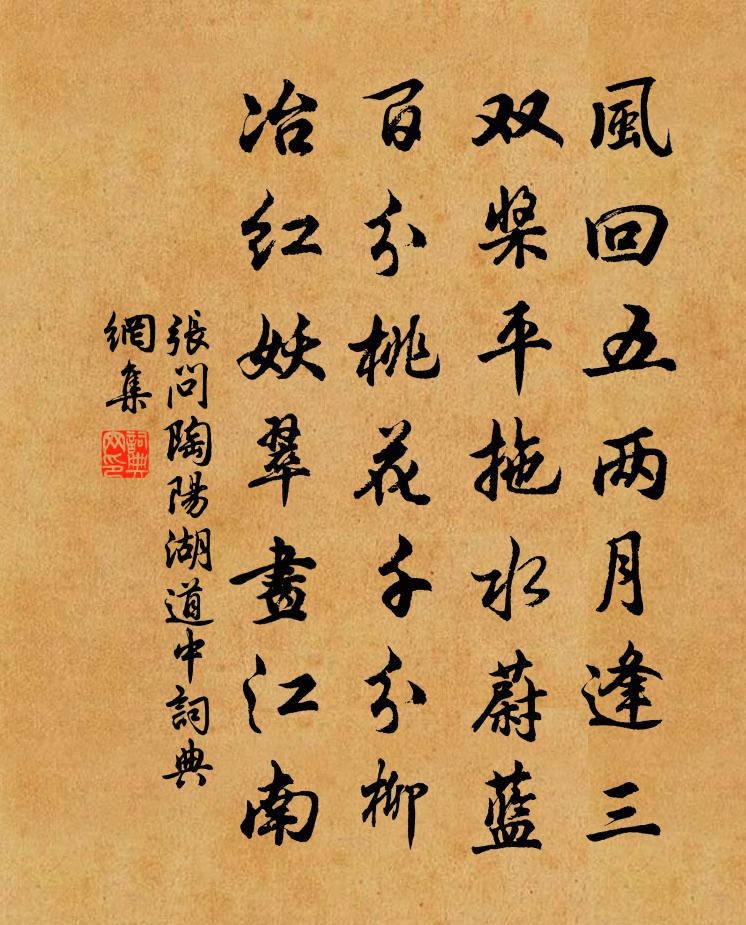 風回五两月逢三
双桨平拖水蔚藍
百分桃花千分柳
冶红妖翠畫江南
張问陶陽湖道中詞典
網集
詞典
网印